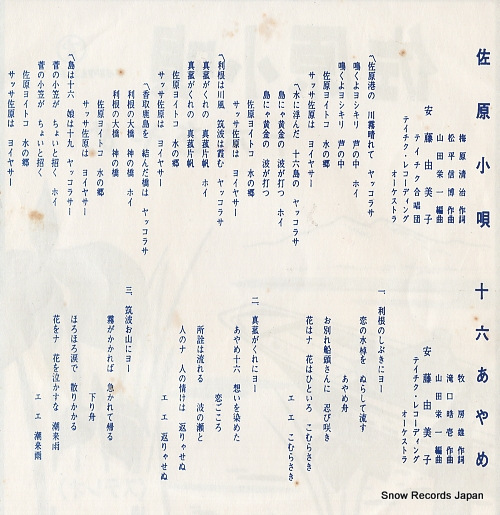 佐原小唄
梅原清治 作詞
松平信博 作曲
山田栄一 編曲
安藤由美子
テイチク合唱団
テイチク・レコーディング
オーケストラ
〽佐原港の 川霧晴れて ヤッコラサ
鳴くよヨシキリ 芦の中 ホイ
鳴くよヨシキリ 芦の中
佐原ヨイトコ 水の郷
サッサ佐原は ヨイヤサー
〽水に浮んだ 十六島の ヤッコラサ
島にゃ黄金の 波が打つ ホイ
島にゃ黄金の 波が打つ
佐原ヨイトコ 水の郷
サッサ佐原は ヨイヤサー
〽利根は川風 筑波は霞む ヤッコラサ
真菰がくれの 真菰片帆 ホイ
真菰がくれの 真菰片帆
佐原ヨイトコ 水の郷
サッサ佐原は ヨイヤサー
〽香取鹿島を 結んだ橋は ヤッコラサ
利根の大橋 神の橋 ホイ
利根の大橋 神の橋
佐原ヨイトコ 水の郷
サッサ佐原は ヨイヤサー
〽島は十六 娘は十九 ヤッコラサー
菅の小笠が ちょいと招く ホイ
菅の小笠が ちょいと招く
佐原ヨイトコ 水の郷
サッサ佐原は ヨイヤサー
十六あやめ
牧房雄 作詞
滝口晧壱 作曲
山田栄一 編曲
安藤由美子
テイチク・レコーディング
オーケストラ
一、利根のしぶきにヨー
恋の水棹を ぬらして流す
あやめ舟
お別れ船頭さんに 忍び咲き
花はナ 花はひといろ こむらさき
エ エ こむらさき
二、真菰がくれにヨー
あやめ十六 想いを染めた
恋ごころ
所詮は流れる 波の瀬と
人のナ 人の情けは 返りゃせぬ
エ エ 返りゃせぬ
三、筑波お山にヨー
霧がかかれば 急かれて帰る
下り舟
ほろほろ涙で 散りかかる
花をナ 花を泣かすな 潮来雨
エ エ 潮来雨
Snow Records Japan